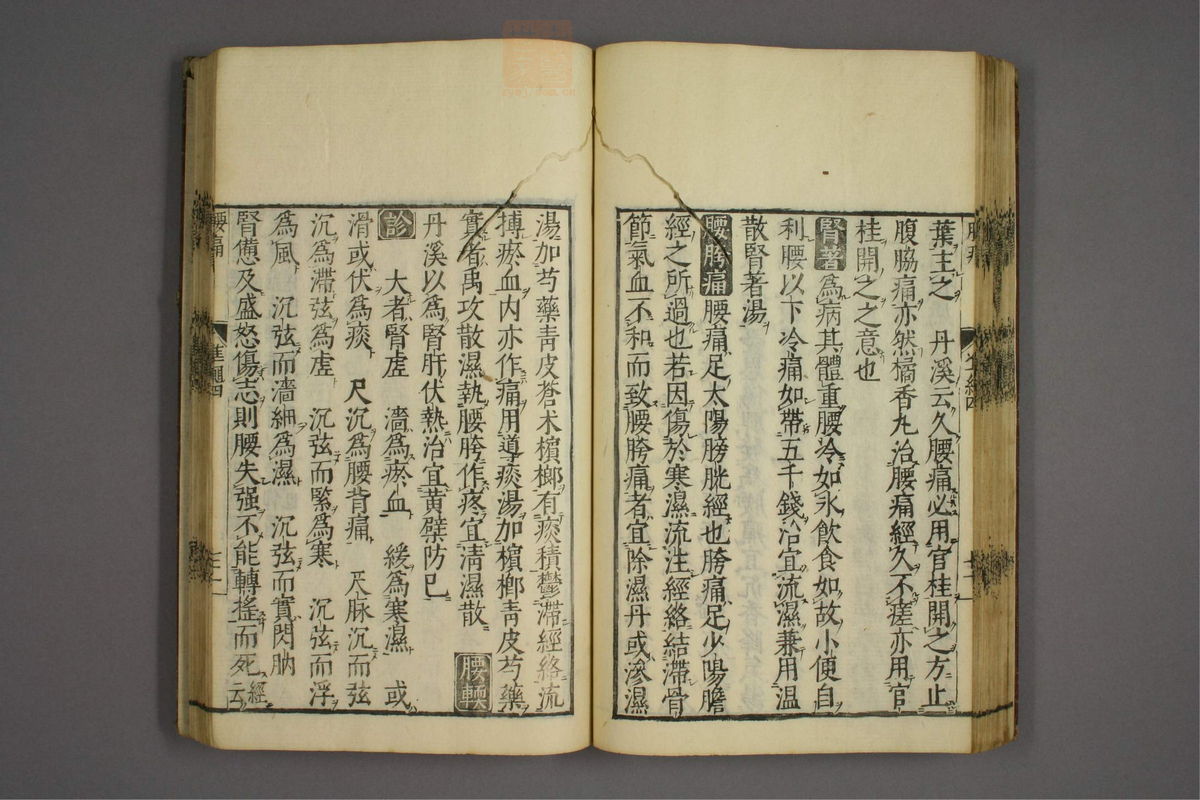 葉主之　丹溪云久腰痛必用官桂開之方止
腹脇痛亦然橘香丸治腰痛經久不瘥亦用官
桂開之之意也
腎著爲病其體重腰冷如氷飲食如故小便自
利腰以下冷痛如帶五千錢治宜流濕兼用溫
散腎著湯
腰胯痛腰痛足太陽膀胱經也胯痛足少陽膽
經之所過也若因傷於寒濕流注經絡結滯骨
節氣血不和而致腰胯痛者宜除濕丹或滲濕
湯加芍藥靑皮蒼朮檳榔有痰積鬱滯經絡流
搏瘀血内亦作痛用導痰湯加檳榔靑皮芍藥
實者禹攻散濕熱腰胯作疼宜淸濕散　腰輭
丹溪以爲腎肝伏熱治宜黄蘗防已
診　大者腎虛　濇爲瘀血　緩爲寒濕　或
滑或伏爲痰　尺沉爲腰背痛　尺脉沉而弦
沉爲滯弦爲虛　沉弦而緊爲寒　沉弦而浮
爲風　沉弦而濇細爲濕　沉弦而實閃肭
腎憊及盛怒傷志則腰失强不能轉搖而死經云
腰痛